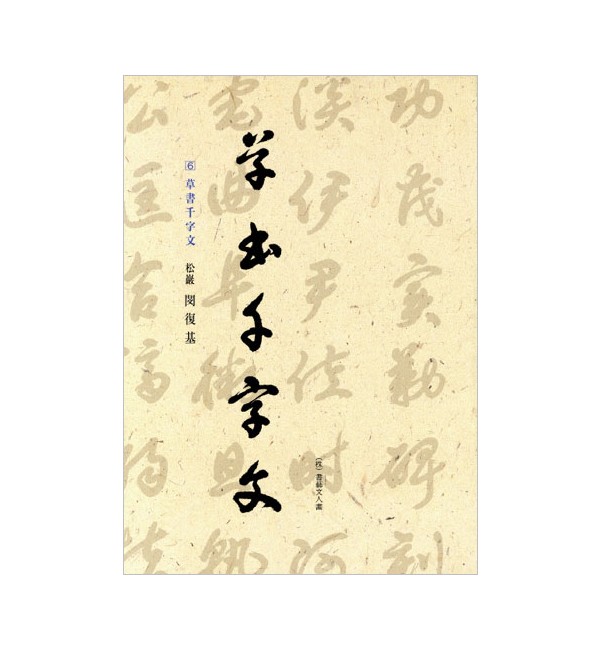 草書千字文
6 草書千字文
松巖 閔復基
(株)書藝文人畵
功茂實勒碑刻
溪伊尹佐時阿
宅曲阜微旦孰
公匡合濟弱扶